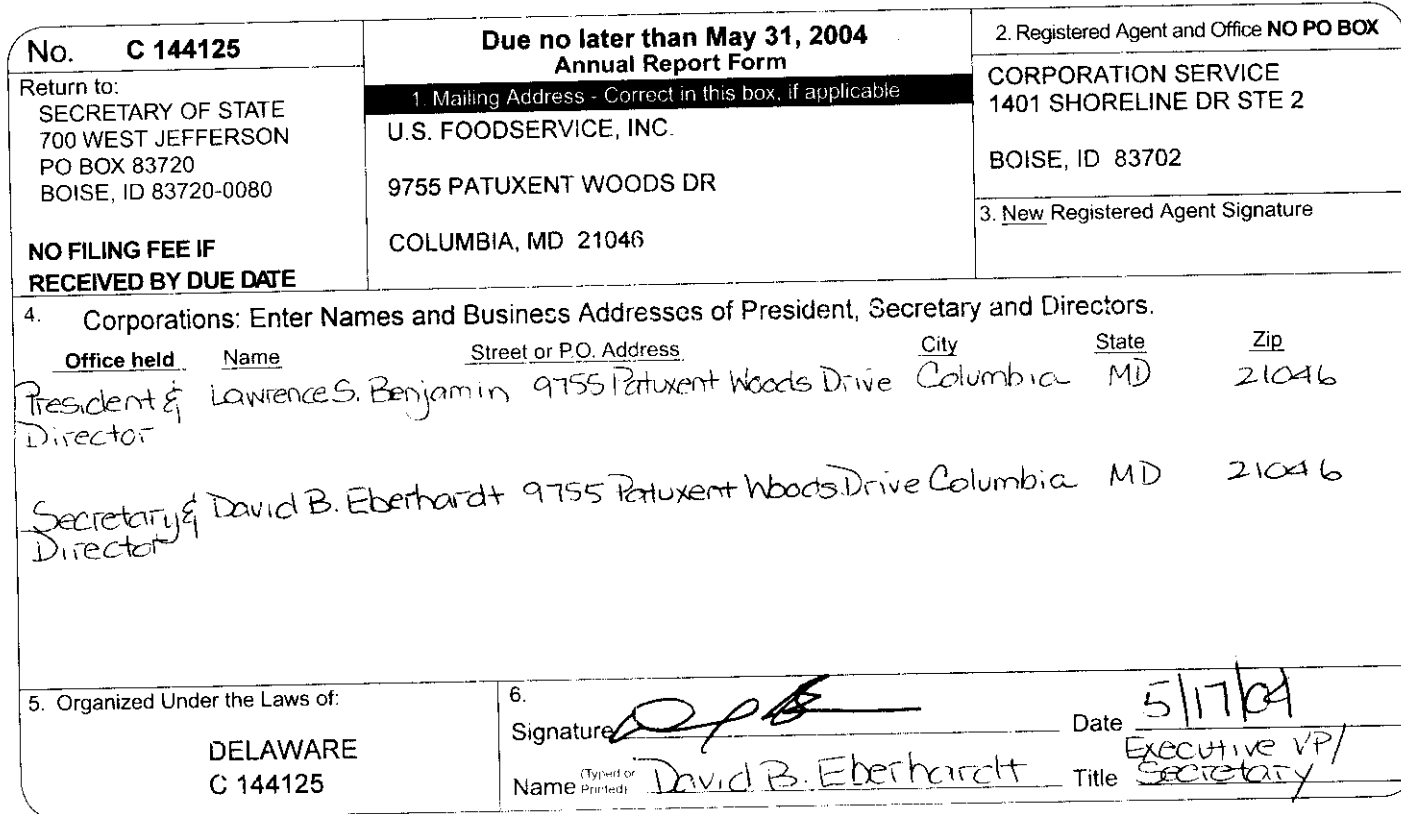 No. C 144125
Return to:
SECRETARY OF STATE
700 WEST JEFFERSON
PO BOX 83720
BOISE, ID 83720-0080
NO FILING FEE IF
RECEIVED BY DUE DATE
Due no later than May 31, 2004
Annual Report Form
1. Mailing Address - Correct in this box, if applicable
U.S. FOODSERVICE, INC.
9755 PATUXENT WOODS DR
COLUMBIA, MD 21046
2. Registered Agent and Office NO PO BOX
CORPORATION SERVICE
1401 SHORELINE DR STE 2
BOISE, ID 83702
3. New Registered Agent Signature
4. Corporations: Enter Names and Business Addresses of President, Secretary and Directors.
Office held Name Street or P.O. Address City State Zip
President & Lawrence S. Benjamin 9755 Patuxent Woods Drive Columbia MD 21046
Director
Secretary & David B. Eberhardt 9755 Patuxent Woods Drive Columbia MD 21046
Director
5. Organized Under the Laws of:
DELAWARE
C 144125
6.
Signature Date 5/17/04
Name (Typed or Printed) David B. Eberhardt Title Executive VP/
Secretary